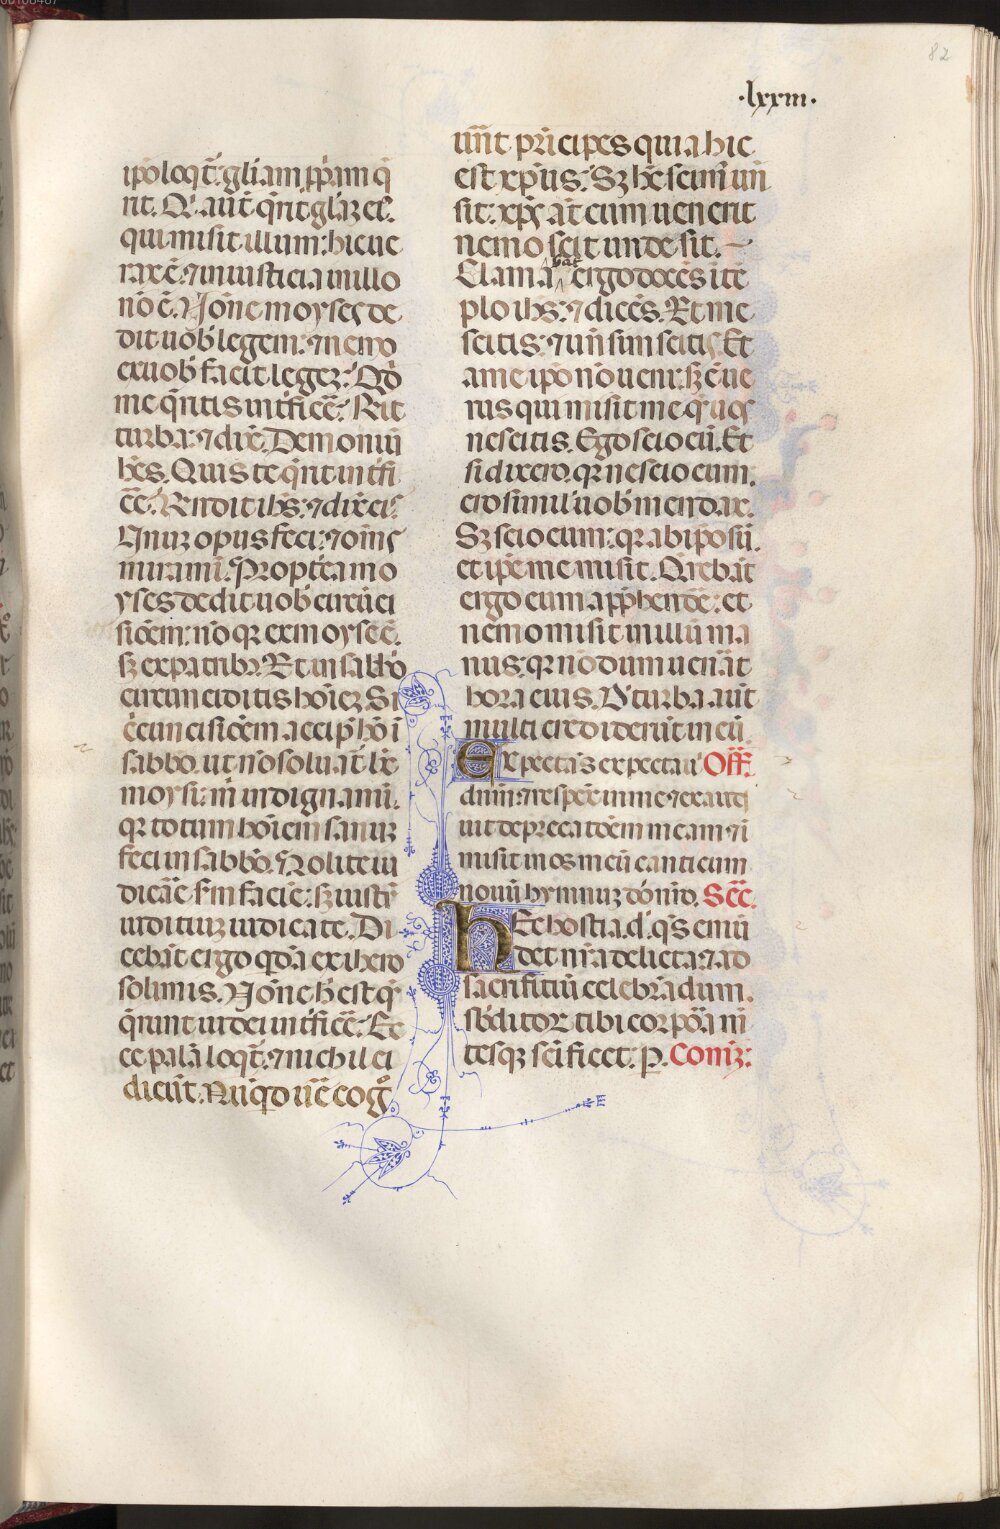 82
·lxxiii·
ip̄o loq̄t̄. gl̄iam p̱p̄am q̄
rit. Q̄ aut̄ q̄rit gl̄az ei᷒.
qui misit illum: hic ue
rax ē. ⁊ iniusticia in illo
nō ē. Nōne moyses de
dit uob̄ legem: ⁊ nemo
ex uob̄ facit legez: Qd̄
me q̄ritis int̄ficē᷒. Rn̄t
turba: ⁊ dix̄. Demoniū
hēs. Quis te q̄rit int̄fi
cē᷒. Rn̄dit ihs̄: ⁊ dix̄ eis
Unuz opus feci: ⁊ om̄s
miramī. Propt̄ea mo
yses dedit uob̄ circūci
siōem: nō qr ex moyse ē.
sz ex patrib᷒. Et in sabb̄o
circunciditis hoīez. Si
circuncisiōem accip̄ hō ī
sabbō. ut nō soluat̄ lex
moysi: m̄ indignamī.
qr totum hoīem sanuz
feci in sabbō. Nolite iu
dicāe s̄m faciē: sz iustū
iudituz iudicate. Di
cebāt ergo qdā ex ihero
solimis. Nōne h̄ est q̄
q̄runt iudei int̄ficē᷒: Ec
ce palā loqt̄. ⁊ nichil ei
dicūt. Nūqd uē coḡ
uūt principes quia hic
est xp̄us. Sz hc̄ scim᷒ un̄
sit: xp̄c at̄ cum uenerit
nemo scit unde sit.
Clamabat ergo docēs ī te
plo ihs̄: ⁊ dicēs. Et me
scitis: ⁊ un̄ sim scitis. Et
a me ip̄o nō ueni: sz ē ue
rus qui misit me quē uos
nescitis. Ego scio eū. Et
si dixero. qr nescio eum.
ero simil᷒ uob̄ mendax.
Sz scio eum: qr ab ip̄o sū.
et ip̄e me misit. Q̄rebāt
ergo eum app̄hendē᷒: et
nemo misit in illū ma
nus: qr nōdum uen̄at
hora eius. D̄ turba aut̄
multi crediderūt in eū.
Expectās expectaui Off̄.
dn̄m: ⁊ respex̄ in me ⁊ exaudi
uit deprecatōem meam ⁊ ī
misit in os meū canticum
nouū hymnuz dō nr̄o. Sec̄.
Hec hostia. d. qs̄ emū
det nr̄a delicta: ⁊ ad
sacrifitiū celebrādum.
sb̄ditor tibi corpōa m̄
tesqz sc̄ificet. p̱. Comūz: